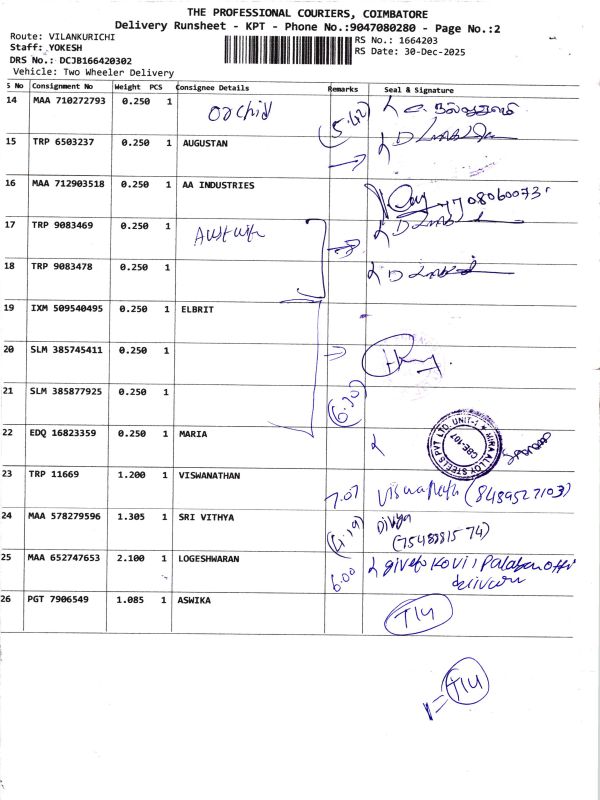 THE PROFESSIONAL COURIERS, COIMBATORE
Delivery Runsheet - KPT - Phone No.:9047080280 - Page No.:2
Route: VILANKURICHI
RS No.: 1664203
Staff: YOKESH
RS Date: 30-Dec-2025
DRS No.: DCJB166420302
Vehicle: Two Wheeler Delivery
S No Consignment No Weight PCS Consignee Details Remarks Seal & Signature
14 MAA 710272793 0.250 1 Orchid (5:42)
15 TRP 6503237 0.250 1 AUGUSTAN
16 MAA 712903518 0.250 1 AA INDUSTRIES 7708060073
17 TRP 9083469 0.250 1
18 TRP 9083478 0.250 1
19 IXM 509540495 0.250 1 ELBRIT
20 SLM 385745411 0.250 1
21 SLM 385877925 0.250 1 (6:30)
22 EDQ 16823359 0.250 1 MARIA MIRA ALLOY STEELS PVT LTD. UNIT-1 CBE-107
23 TRP 11669 1.200 1 VISWANATHAN 7.07 (8489527103)
24 MAA 578279596 1.305 1 SRI VITHYA (4:19) Divya
25 MAA 652747653 2.100 1 LOGESHWARAN 6:00
26 PGT 7906549 1.085 1 ASWIKA